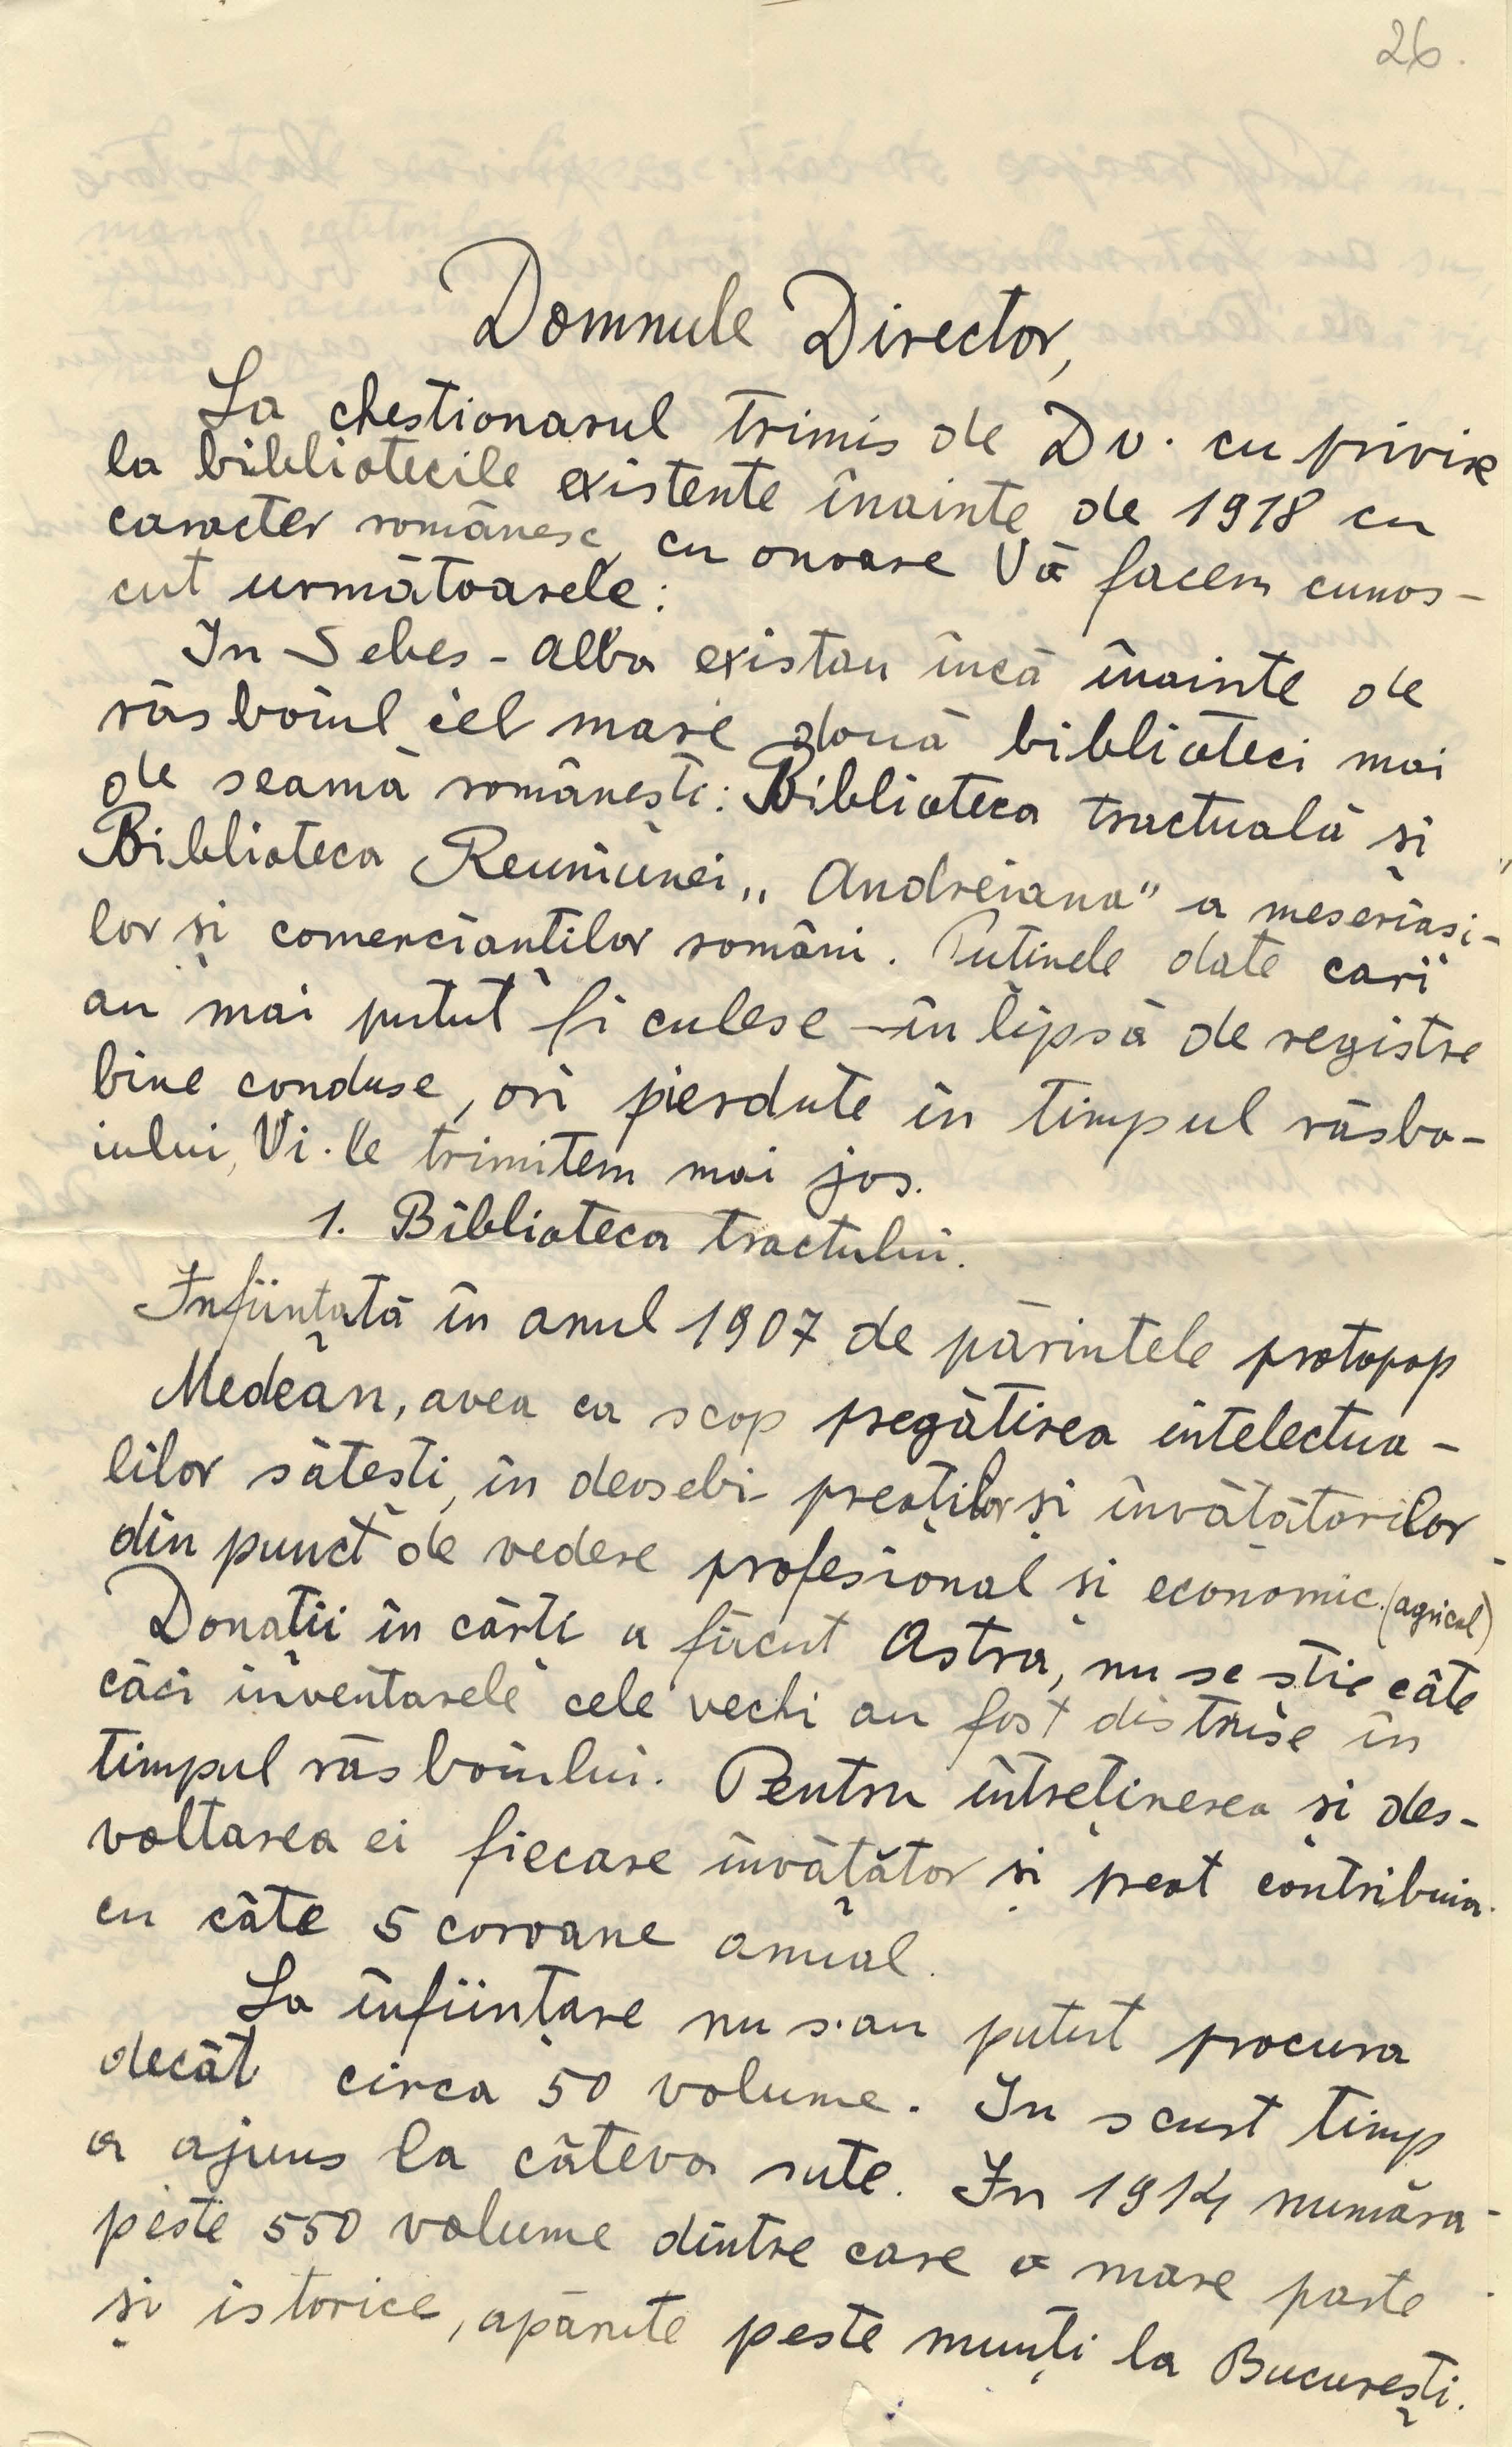 26.
Domnule Director,
La chestionarul trimis de Dv. cu privire
la bibliotecile existente înainte de 1918 cu
caracter românesc, cu onoare Vă facem cunos-
cut următoarele:
In Sebeș-Alba existau încă înainte de
răsboiul cel mare două biblioteci mai
de seamă românești: Biblioteca tractuală și
Biblioteca Reuniunei „Andreiana" a meseriași-
lor și comercianților români. Puținele date cari
au mai putut fi culese – în lipsă de registre
bine conduse, ori pierdute în timpul răsbo-
iului, Vi-le trimitem mai jos.
1. Biblioteca tractului.
Inființată în anul 1907 de părintele protopop
Medean, avea ca scop pregătirea intelectua-
lilor sătești, în deosebi preoților și învățătorilor
din punct de vedere profesional și economic. (agricol)
Donații în cărți a făcut Astra, nu se știe câte
căci inventarele cele vechi au fost distruse în
timpul răsboiului. Pentru întreținerea și des-
voltarea ei fiecare învățător și preot contribuia
cu câte 5 coroane anual.
La înființare nu s-au putut procura
decât circa 50 volume. In scurt timp
a ajuns la câteva sute. In 1914 număra
peste 550 volume dintre care o mare parte
și istorice, apărute peste munți la București.